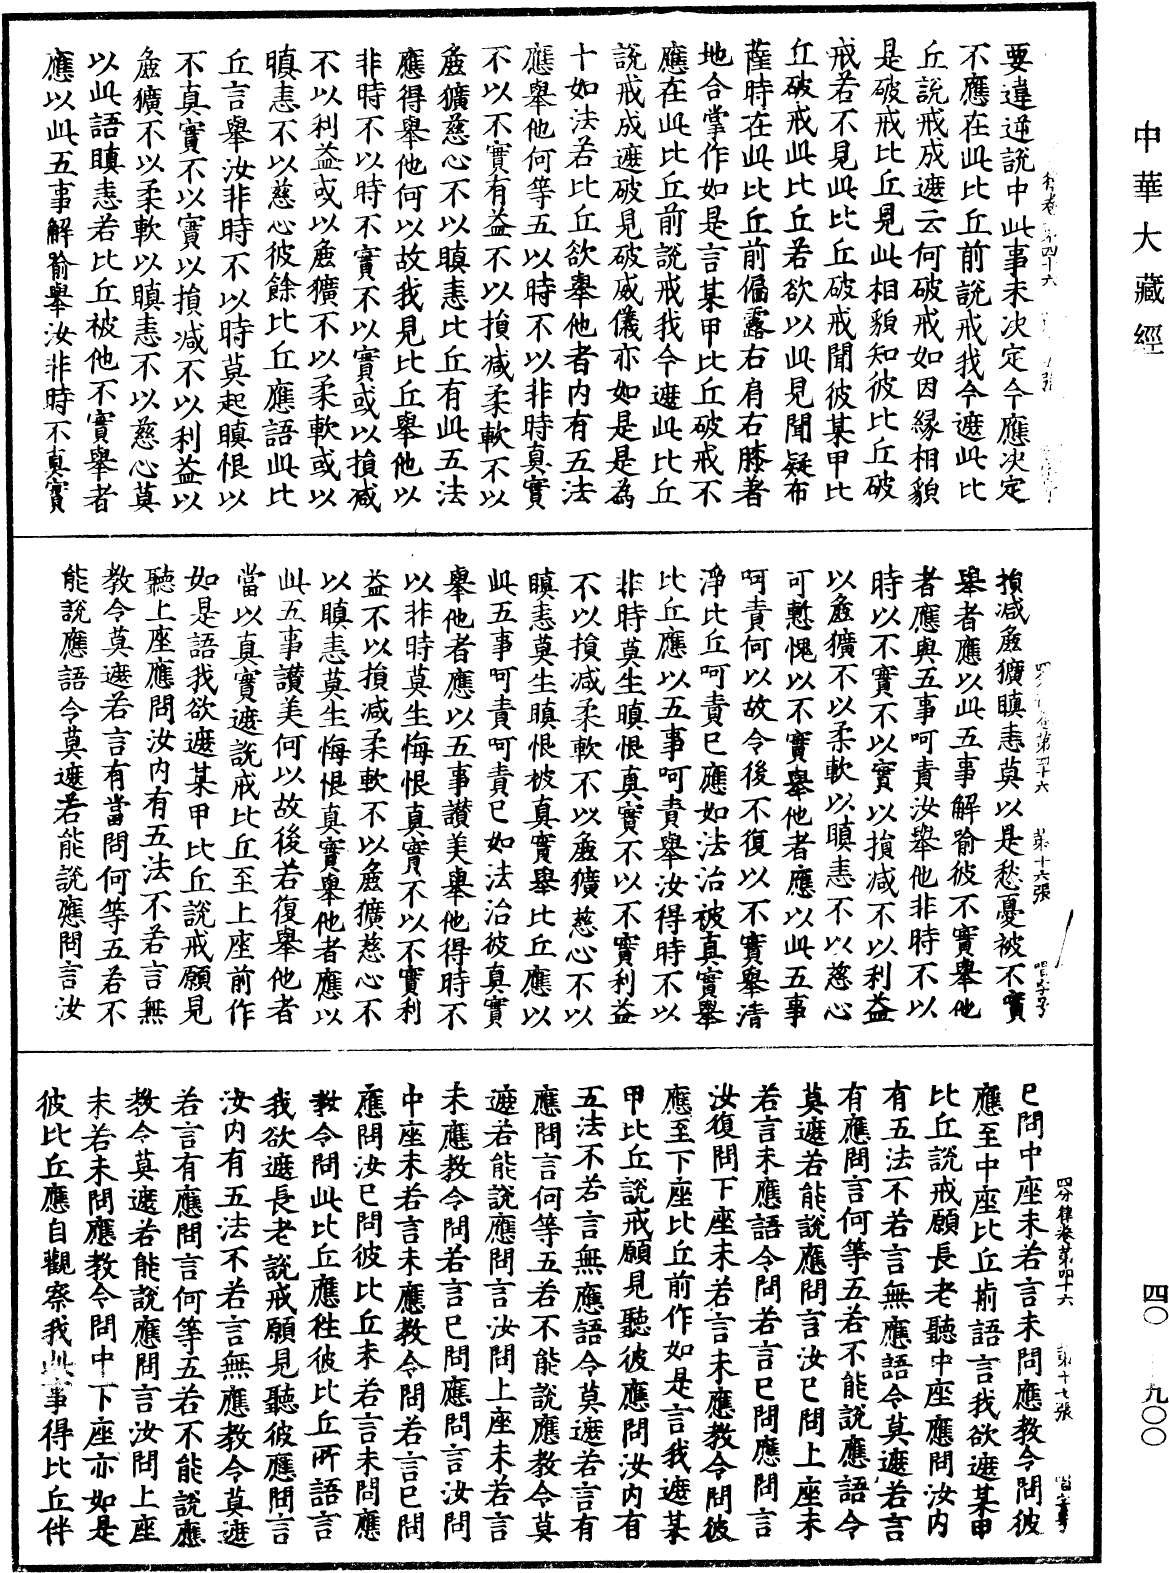 中華大藏經
要違逆說中此事未決定今應決定
不應在此比丘前說戒我今遮此比
丘說戒成遮云何破戒如因緣相貌
是破戒比丘見此相貌知彼比丘破
戒若不見此比丘破戒聞彼某甲比
丘破戒此比丘若欲以此見聞疑布
薩時在此比丘前偏露右肩右膝著
地合掌作如是言某甲比丘破戒不
應在此比丘前說戒我今遮此比丘
說戒成遮破見破威儀亦如是是為
十如法若比丘欲舉他者內有五法
應舉他何等五以時不以非時真實
不以不實有益不以損減柔軟不以
麁獷慈心不以瞋恚比丘有此五法
應得舉他何以故我見比丘舉他以
非時不以時不實不以實或以損減
不以利益或以麁獷不以柔軟或以
瞋恚不以慈心彼餘比丘應語此比
丘言舉汝非時不以時莫起瞋恨以
不真實不以實以損減不以利益以
麁獷不以柔軟以瞋恚不以慈心莫
以此語瞋恚若比丘被他不實舉者
應以此五事解喻舉汝非時不真實
損減麁獷瞋恚莫以是愁憂被不實
舉者應以此五事解喻彼不實舉他
者應與五事呵責汝舉他非時不以
時以不實不以實以損減不以利益
以麁獷不以柔軟以瞋恚不以慈心
可慙愧以不實舉他者應以此五事
呵責何以故令後不復以不實舉清
淨比丘呵責已應如法治被真實舉
比丘應以五事呵責舉汝得時不以
非時莫生瞋恨真實不以不實利益
不以損減柔軟不以麁獷慈心不以
瞋恚莫生瞋恨被真實舉比丘應以
此五事呵責呵責已如法治彼真實
舉他者應以五事讚美舉他得時不
以非時莫生悔恨真實不以不實利
益不以損減柔軟不以麁獷慈心不
以瞋恚莫生悔恨真實舉他者應以
此五事讚美何以故後若復舉他者
當以真實遮說戒比丘至上座前作
如是語我欲遮某甲比丘說戒願見
聽上座應問汝內有五法不若言無
教令莫遮若言有當問何等五若不
能說應語令莫遮若能說應問言汝
四分律卷第四十六　第十七張
已問中座未若言未問應教令問彼
應至中座比丘前語言我欲遮某甲
比丘說戒願長老聽中座應問汝內
有五法不若言無應語令莫遮若言
有應問言何等五若不能說應語令
莫遮若能說應問言汝已問上座未
若言未應語令問若言已問應問言
汝復問下座未若言未應教令問彼
應至下座比丘前作如是言我遮某
甲比丘說戒願見聽彼應問汝內有
五法不若言無應語令莫遮若言有
應問言何等五若不能說應教令莫
遮若能說應問言汝問上座未若言
未應教令問若言已問應問言汝問
中座未若言未應教令問若言已問
應問汝已問彼比丘未若言未問應
教令問此比丘應往彼比丘所語言
我欲遮長老說戒願見聽彼應問言
汝內有五法不若言無應教令莫遮
若言有應問言何等五若不能說應
教令莫遮若能說應問言汝問上座
未若未問應教令問中下座亦如是
彼比丘應自觀察我此事得比丘伴
四〇　九〇〇